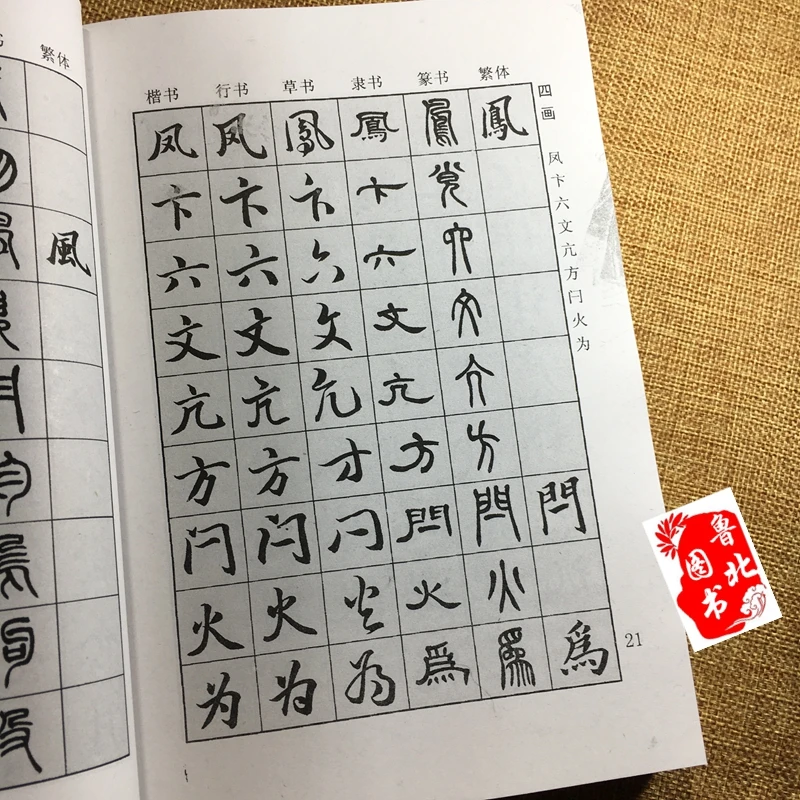 繁体
風
楷书 行书 草书 隶书 篆书 繁体
凤 凤 鳳 鳳 鳳 鳳
卞 卞 卞 卞
六 六 六 六 六
文 文 文 文 文
亢 亢 亢 亢 亢
方 方 方 方 方
闩 闩 闩 閂 閂 閂
火 火 火 火 火
为 为 为 為 為 為
四画 凤卞六文亢方闩火为
21
鲁北
图书